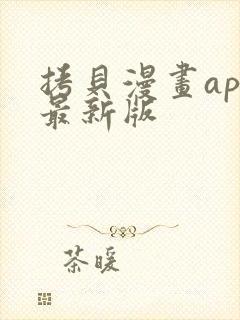 拷貝漫畫ap
最新版
茶暖